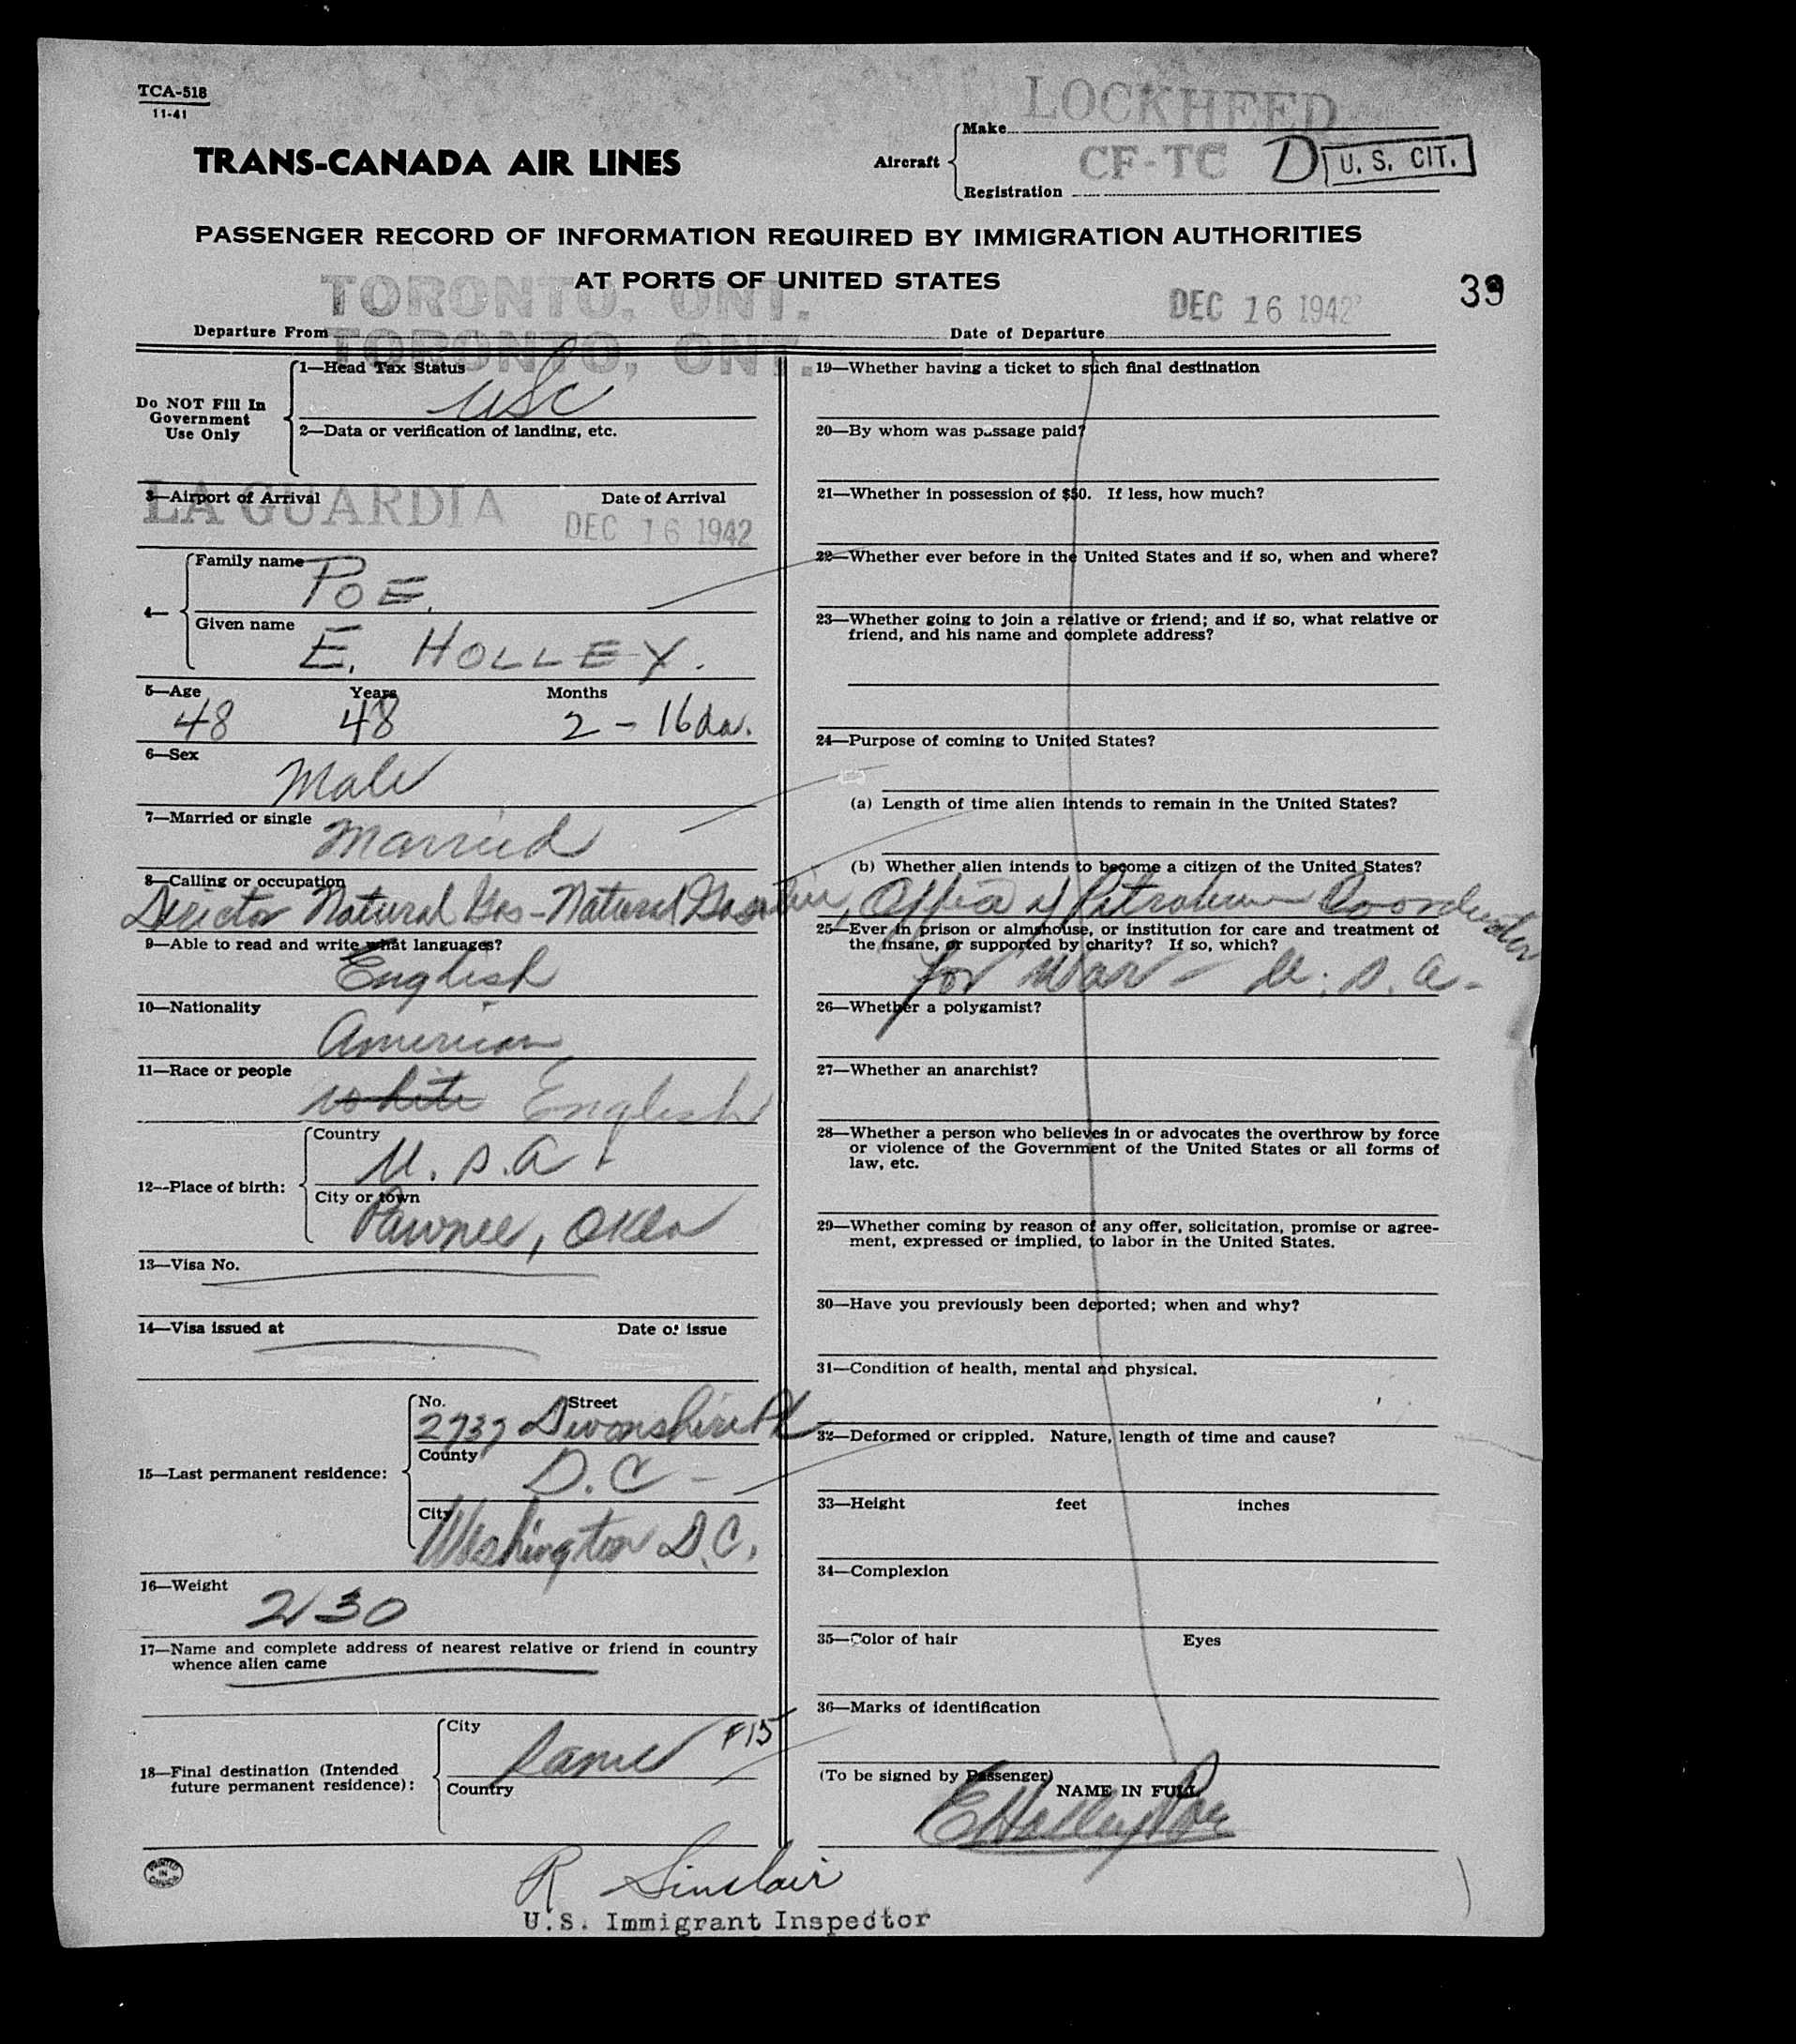 TCA-518
11-41
LOCKHEED
Make
TRANS-CANADA AIR LINES
Aircraft
CF-TC D U. S. CIT.
Registration
PASSENGER RECORD OF INFORMATION REQUIRED BY IMMIGRATION AUTHORITIES
AT PORTS OF UNITED STATES
39
TORONTO, ONT.
DEC 16 1942
Departure From TORONTO, ONT. Date of Departure
Do NOT Fill In
Government
Use Only
1—Head Tax Status
USC
2—Data or verification of landing, etc.
3—Airport of Arrival Date of Arrival
LA GUARDIA DEC 16 1942
4—
Family name
POE.
Given name
E. HOLLEY.
5—Age Years Months
48 48 2 - 16 da.
6—Sex
Male
7—Married or single
Married
8—Calling or occupation
Director Natural Gas-Natural Gasoline, Office of Petroleum Coordinator
for War - U. S. A -
9—Able to read and write what languages?
English
10—Nationality
American
11—Race or people
white English
12—Place of birth:
Country
U. S. A
City or town
Pawnee, Okla
13—Visa No.
14—Visa issued at Date of issue
15—Last permanent residence:
No. Street
2737 Devonshire Pl
County
D. C -
City
Washington D.C.
16—Weight
230
17—Name and complete address of nearest relative or friend in country
whence alien came
18—Final destination (Intended
future permanent residence):
City
Same F15
Country
19—Whether having a ticket to such final destination
20—By whom was passage paid?
21—Whether in possession of $50. If less, how much?
22—Whether ever before in the United States and if so, when and where?
23—Whether going to join a relative or friend; and if so, what relative or
friend, and his name and complete address?
24—Purpose of coming to United States?
(a) Length of time alien intends to remain in the United States?
(b) Whether alien intends to become a citizen of the United States?
25—Ever in prison or almshouse, or institution for care and treatment of
the insane, or supported by charity? If so, which?
26—Whether a polygamist?
27—Whether an anarchist?
28—Whether a person who believes in or advocates the overthrow by force
or violence of the Government of the United States or all forms of
law, etc.
29—Whether coming by reason of any offer, solicitation, promise or agree-
ment, expressed or implied, to labor in the United States.
30—Have you previously been deported; when and why?
31—Condition of health, mental and physical.
32—Deformed or crippled. Nature, length of time and cause?
33—Height feet inches
34—Complexion
35—Color of hair Eyes
36—Marks of identification
(To be signed by Passenger)
NAME IN FULL
E Holley Poe
PRINTED
IN
CANADA
R Sinclair
U.S. Immigrant Inspector